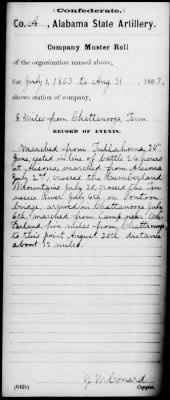 (Confederate.)
Co. A, Alabama State Artillery.
Company Muster Roll
of the organization named above,
for July 1, 1863 to Aug. 31, 1863,
shows station of company,
8 Miles from Chattanooga, Tenn
RECORD OF EVENTS.
Marched from Tullahoma 30th
June, rested in line of battle 24 hours
at Alisona, marched from Alisona
July 2nd, crossed the Cumberland
Mountains July 3d, crossed the Ten-
nessee River July 4th on pontoon
bridge, arrived in Chattanooga July
6th marched from Camp near Mc-
Farland, five miles from Chattanooga
to this point August 30th distance
about 12 miles.
(642b)
Copyist.